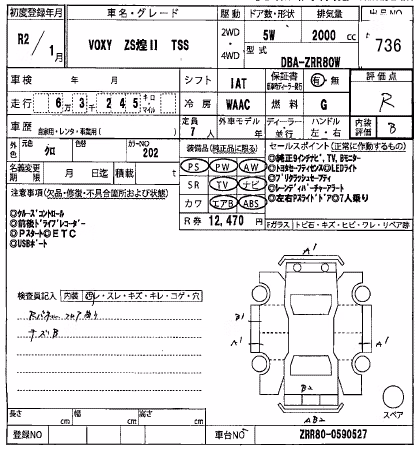 初度登録年月 車名・グレード 駆動 ドア数・形状 排気量 出品NO
R2/1月 VOXY ZS煌II TSS 2WD・4WD 5W 2000cc 736
型式 DBA-ZRR80W
車検 年 月 シフト IAT 保証書 有・無 評価点 R
走行 6万3千245キロ・マイル 冷房 WAAC 燃料 G
車歴 自家用・レンタ・事業用( ) 定員 7人 外車モデル 年 ディーラー・並行 ハンドル 左・右 内装評価 B
外色 元色 クロ 色替 カラーNO 202
装備品(純正品に限る) セールスポイント(正常に作動するもの)
名義変更期限 月 日迄 積載 t
PS PW AW
SR TV ナビ
カワ エアB ABS
R券 12,470円
◎純正9インチナビ、TV、Bモニター
◎トヨタセーフティセンス◎LEDライト
◎プリクラッシュセーフティ
◎レーンディパーチャーアラート
◎左右Pスライドドア◎7人乗り
注意事項(欠品・修復・不具合箇所および状態)
◎クルーズコントロール
◎前後ドライブレコーダー
◎Pスタート◎ETC
◎USBポート
Fガラス トビ石・キズ・ヒビ・ワレ・リペア跡
検査員記入 内装 ヨゴレ・スレ・キズ・キレ・コゲ・穴
キズB
A1
B1
A1
A1
B2
AB2
スペア
長さ cm 幅 cm 高さ cm
登録NO 車台NO ZRR80-0590527